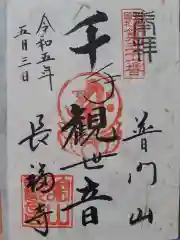 奉拝
普門山
千手観世音
長福寺
令和五年
五月三日